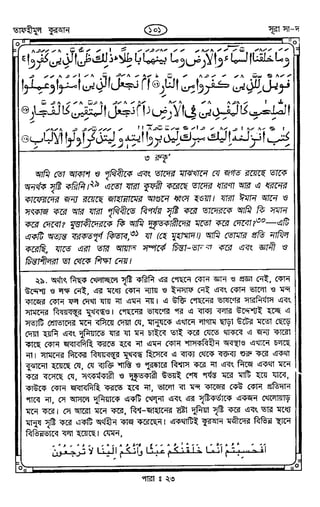 তাফহীমুল কুরআন
১০১
সূরা সা-দ
وَمَا خَلَقْنَا السَّمَاءَ وَالْأَرْضَ وَمَا بَيْنَهُمَا بَاطِلًا ذَٰلِكَ ظَنُّ الَّذِينَ كَفَرُوا
فَوَيْلٌ لِّلَّذِينَ كَفَرُوا مِنَ النَّارِ أَمْ نَجْعَلُ الَّذِينَ آمَنُوا وَعَمِلُوا
الصَّالِحَاتِ كَالْمُفْسِدِينَ فِي الْأَرْضِ أَمْ نَجْعَلُ الْمُتَّقِينَ كَالْفُجَّارِ
كِتَابٌ أَنزَلْنَاهُ إِلَيْكَ مُبَارَكٌ لِّيَدَّبَّرُوا آيَاتِهِ وَلِيَتَذَكَّرَ أُولُو الْأَلْبَابِ
৩ রুকূ'
আমি তো আকাশ ও পৃথিবীকে এবং তাদের মাঝখানে যে জগত রয়েছে তাকে
অনর্থক সৃষ্টি করিনি।২৯ এতো যারা কুফরী করেছে তাদের ধারণা আর এ ধরনের
কাফেরদের জন্য রয়েছে জাহান্নামের আগুনে ধ্বংস হওয়া। যারা ঈমান আনে ও
সৎকাজ করে আর যারা পৃথিবীতে বিপর্যয় সৃষ্টি করে তাদেরকে আমি কি সমান
করে দেবো? মুত্তাকীদেরকে কি আমি দুষ্কৃতকারীদের মতো করে দেবো?৩০—এটি
একটি অত্যন্ত বরকতপূর্ণ কিতাব,৩১ যা (হে মুহাম্মাদ!) আমি তোমার প্রতি নাযিল
করেছি, যাতে এরা তার আয়াত সম্পর্কে চিন্তা-ভাবনা করে এবং জ্ঞানী ও
চিন্তাশীলরা তা থেকে শিক্ষা নেয়।
২৯. অর্থাৎ নিছক খেলাচ্ছলে সৃষ্টি করিনি এর পেছনে কোন জ্ঞান ও প্রজ্ঞা নেই, কোন
উদ্দেশ্য ও লক্ষ নেই, এর মধ্যে কোন ন্যায় ও ইনসাফ নেই এবং কোন ভালো ও মন্দ
কাজের কোন ফল দেখা যায় না এমন নয়। এ উক্তি পেছনের ভাষণের সারনির্যাস এবং
সামনের বিষয়বস্তুর মুখবন্ধও। পেছনের ভাষণের পর এ বাক্য বলার উদ্দেশ্যই হচ্ছে এ
সত্যটি শ্রোতাদের মনে বসিয়ে দেয়া যে, মানুষকে এখানে লাগাম ছাড়া উটের মতো ছেড়ে
দেয়া হয়নি এবং দুনিয়াতে যার যা মন চাইবে তাই করে যেতে থাকবে এ জন্য কারো
কাছে কোন জবাবদিহি করতে হবে না এমন কোন শাসকবিহীন অবস্থাও এখানে চলছে
না। সামনের দিকের বিষয়বস্তুর মুখবন্ধ হিসেবে এ বাক্য থেকে বক্তব্য শুরু করে একথা
বুঝানো হয়েছে যে, যে ব্যক্তি শাস্তি ও পুরস্কারে বিশ্বাস করে না এবং নিজে একথা মনে
করে বসেছে যে, সৎকর্মকারী ও দুষ্কৃতকারী উভয়ই শেষ পর্যন্ত মরে মাটি হয়ে যাবে,
কাউকে কোন জবাবদিহি করতে হবে না, ভালো বা মন্দ কাজের কেউ কোন প্রতিদান
পাবে না, সে আসলে দুনিয়াকে একটি খেলনা এবং এর সৃষ্টিকর্তাকে একজন খেলোয়াড়
মনে করে। সে আরো মনে করে, বিশ্ব-জাহানের স্রষ্টা দুনিয়া সৃষ্টি করে এবং তার মধ্যে
মানুষ সৃষ্টি করে একটি অর্থহীন কাজ করেছেন। একথাটিই কুরআন মজীদের বিভিন্ন স্থানে
বিভিন্নভাবে বলা হয়েছে। যেমন,
أَفَحَسِبْتُمْ أَنَّمَا خَلَقْنَاكُمْ عَبَثًا وَأَنَّكُمْ إِلَيْنَا لَا تُرْجَعُونَ
পারা : ২৩